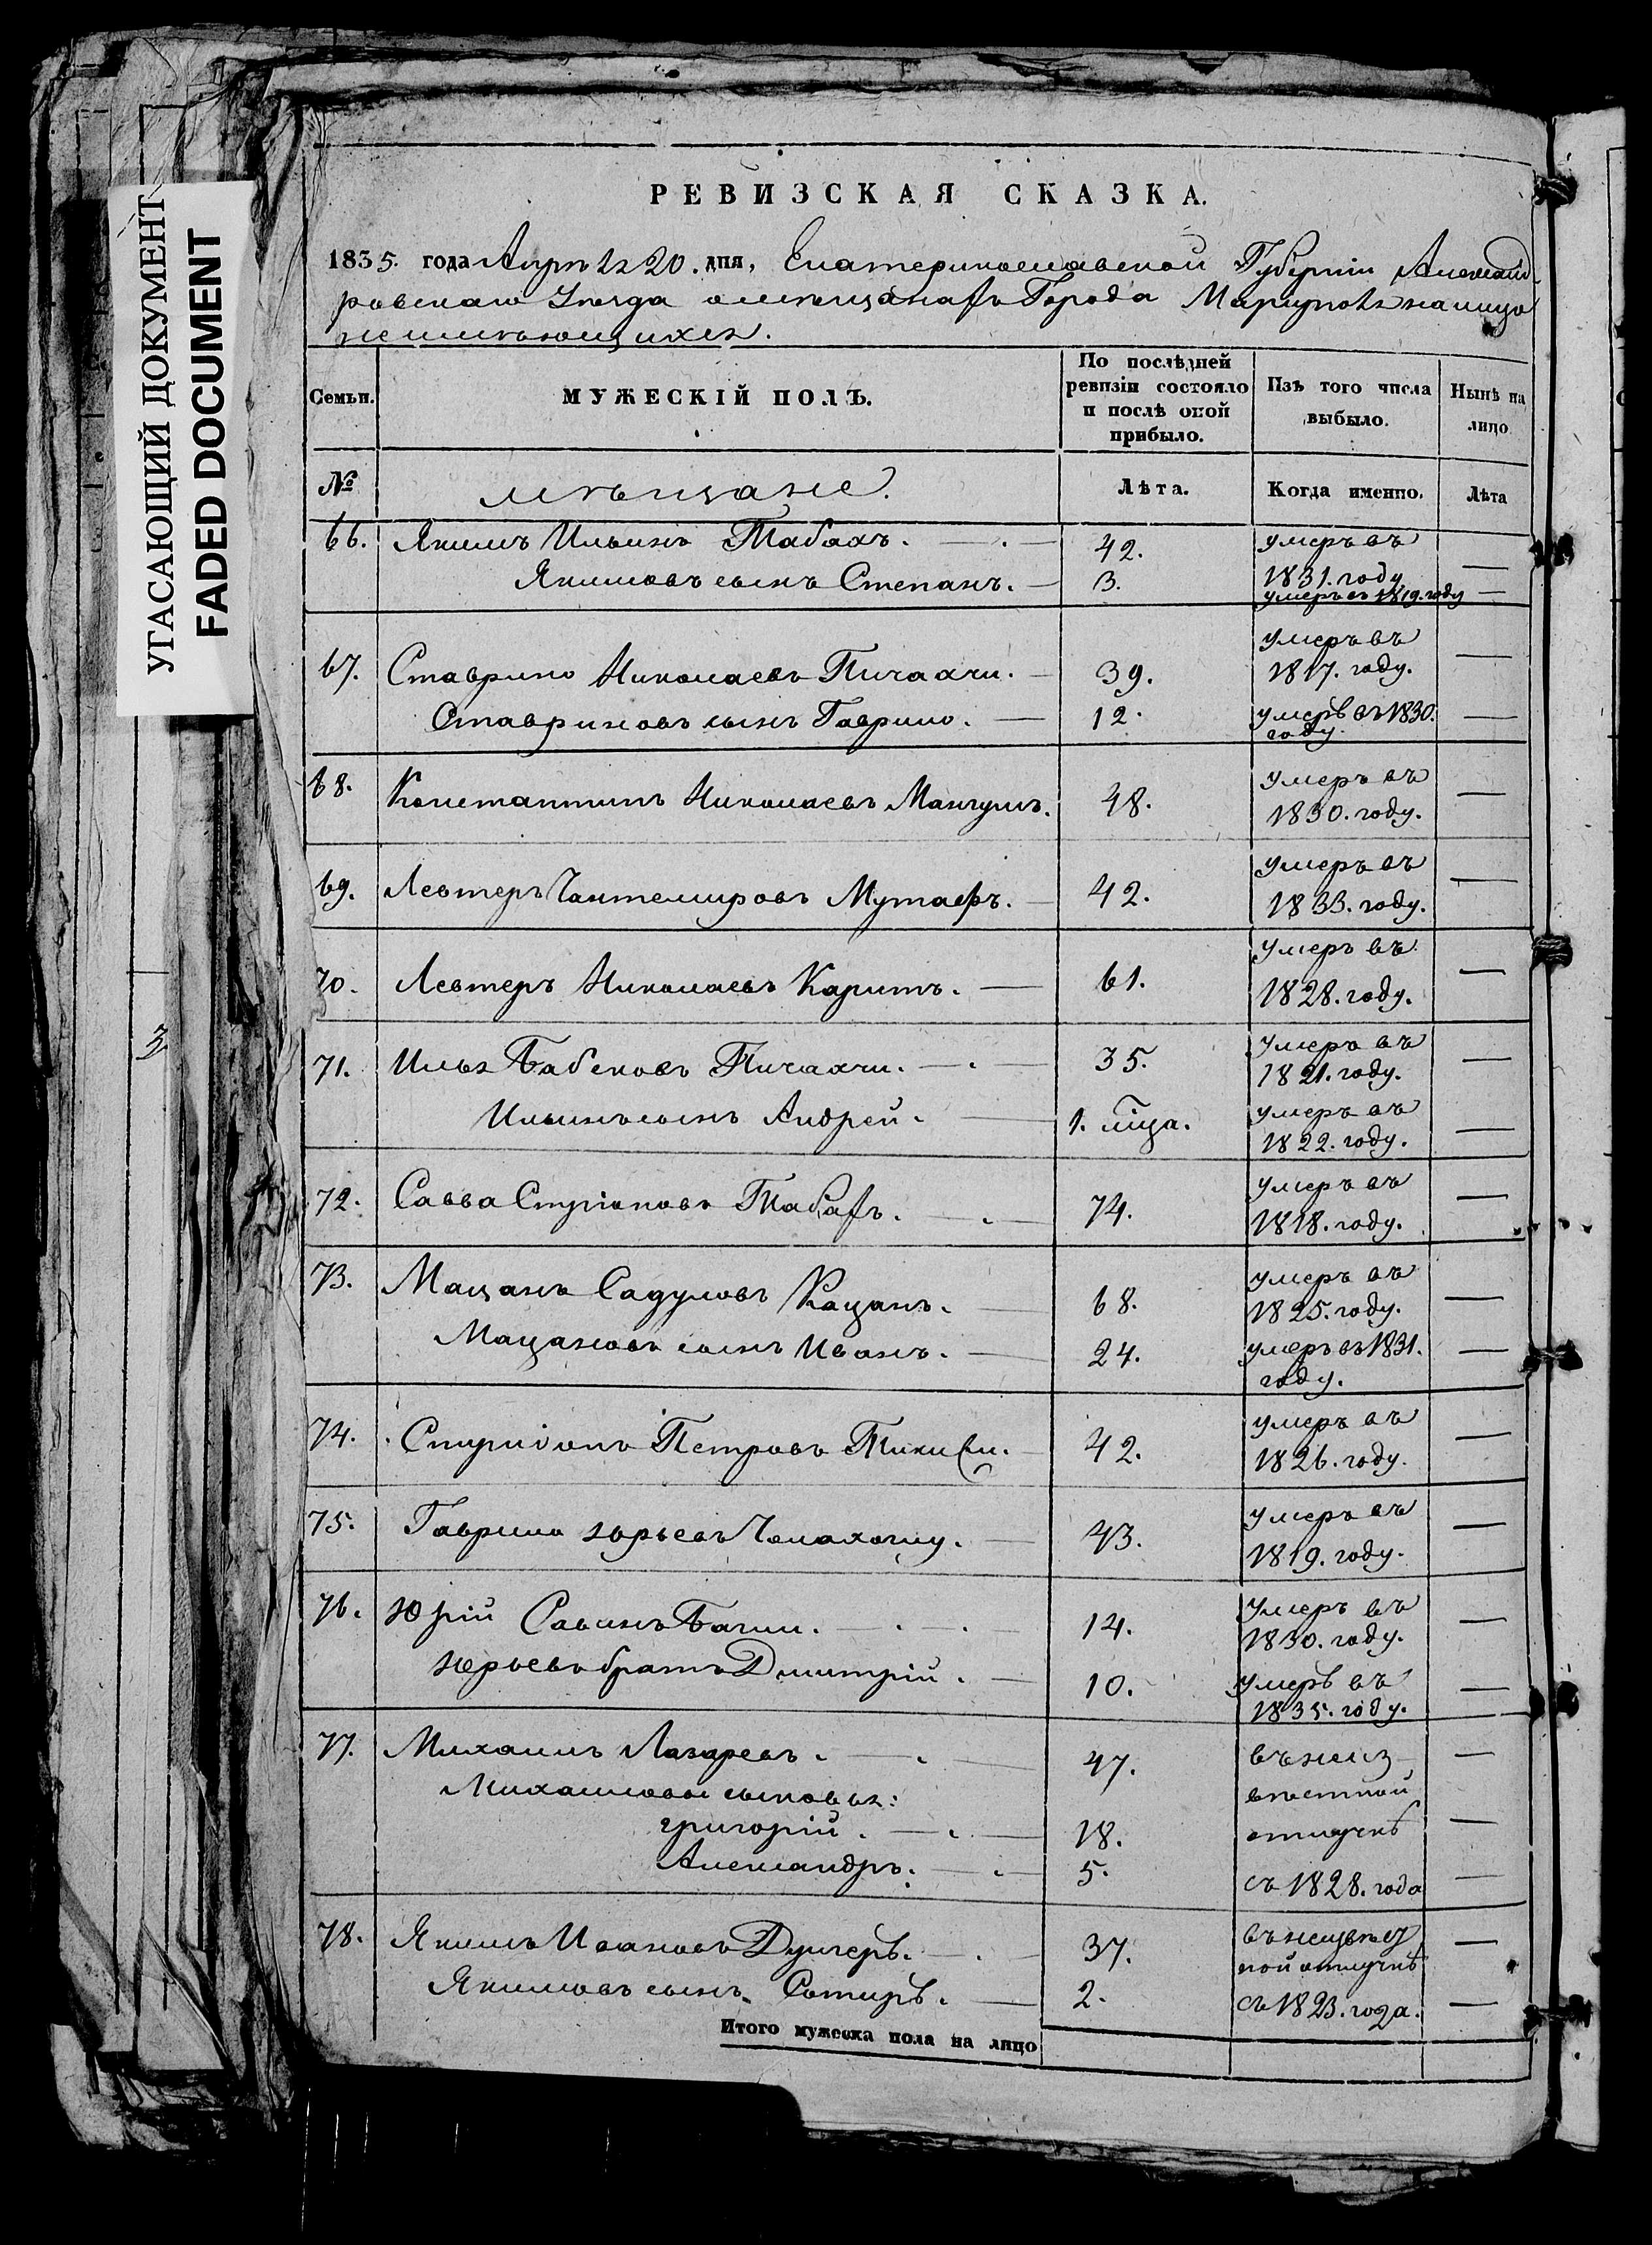 УГАСАЮЩИЙ ДОКУМЕНТ
FADED DOCUMENT
3
РЕВИЗСКАЯ СКАЗКА.
1835. года Апрѣля 20. дня, Екатеринославской Губерніи Александ-
ровскаго Уѣзда о мѣщанахъ Города Маріуполя на лицо
не имѣющихся.
Семьи. МУЖЕСКІЙ ПОЛЪ. По послѣдней ревизіи состояло и послѣ оной прибыло. Изъ того числа выбыло. Нынѣ на лицо
№ мѣщане. Лѣта. Когда именно. Лѣта
66. Якимъ Ильинъ Табахъ. — 42. умеръ въ 1831. году —
Якимовъ сынъ Степанъ. — 3. умеръ въ 1819. году —
67. Ставрино Николаевъ Пичахчи. — 39. умеръ въ 1817. году. —
Ставриновъ сынъ Гаврило. — 12. умеръ въ 1830. году. —
68. Константинъ Николаевъ Мангушъ. 48. умеръ въ 1830. году. —
69. Левтеръ Чантемировъ Мутафъ. — 42. умеръ въ 1833. году. —
70. Левтеръ Николаевъ Каритъ. — 61. умеръ въ 1828. году. —
71. Илья Бабековъ Пичахчи. — 35. умеръ въ 1821. году. —
Ильинъ сынъ Андрей. — 1. мца. умеръ въ 1822. году. —
72. Савва Стуріоновъ Табахъ. — 74. умеръ въ 1818. году. —
73. Мацанъ Садуловъ Кацанъ. — 68. умеръ въ 1825. году. —
Мацановъ сынъ Иванъ. — 24. умеръ въ 1831. году. —
74. Петровъ — 42. умеръ въ 1826. году. —
75. Гаврило Юрьевъ — 43. умеръ въ 1819. году. —
76. Юрій Савинъ — 14. умеръ въ 1830. году. —
Юрьевъ братъ Дмитрій. — 10. умеръ въ 1835. году. —
77. Михаилъ Лазаревъ. — 47. въ неиз- —
Михаиловы сыновья: вѣстной
Григорій. — 18. отлучкѣ —
Александръ. — 5. съ 1828. года —
78. Якимъ Ивановъ Дулгеръ. — 37. въ неизвѣст ной отлучкѣ —
Якимовъ сынъ Сотиръ. — 2. съ 1823. года. —
Итого мужеска пола на лицо